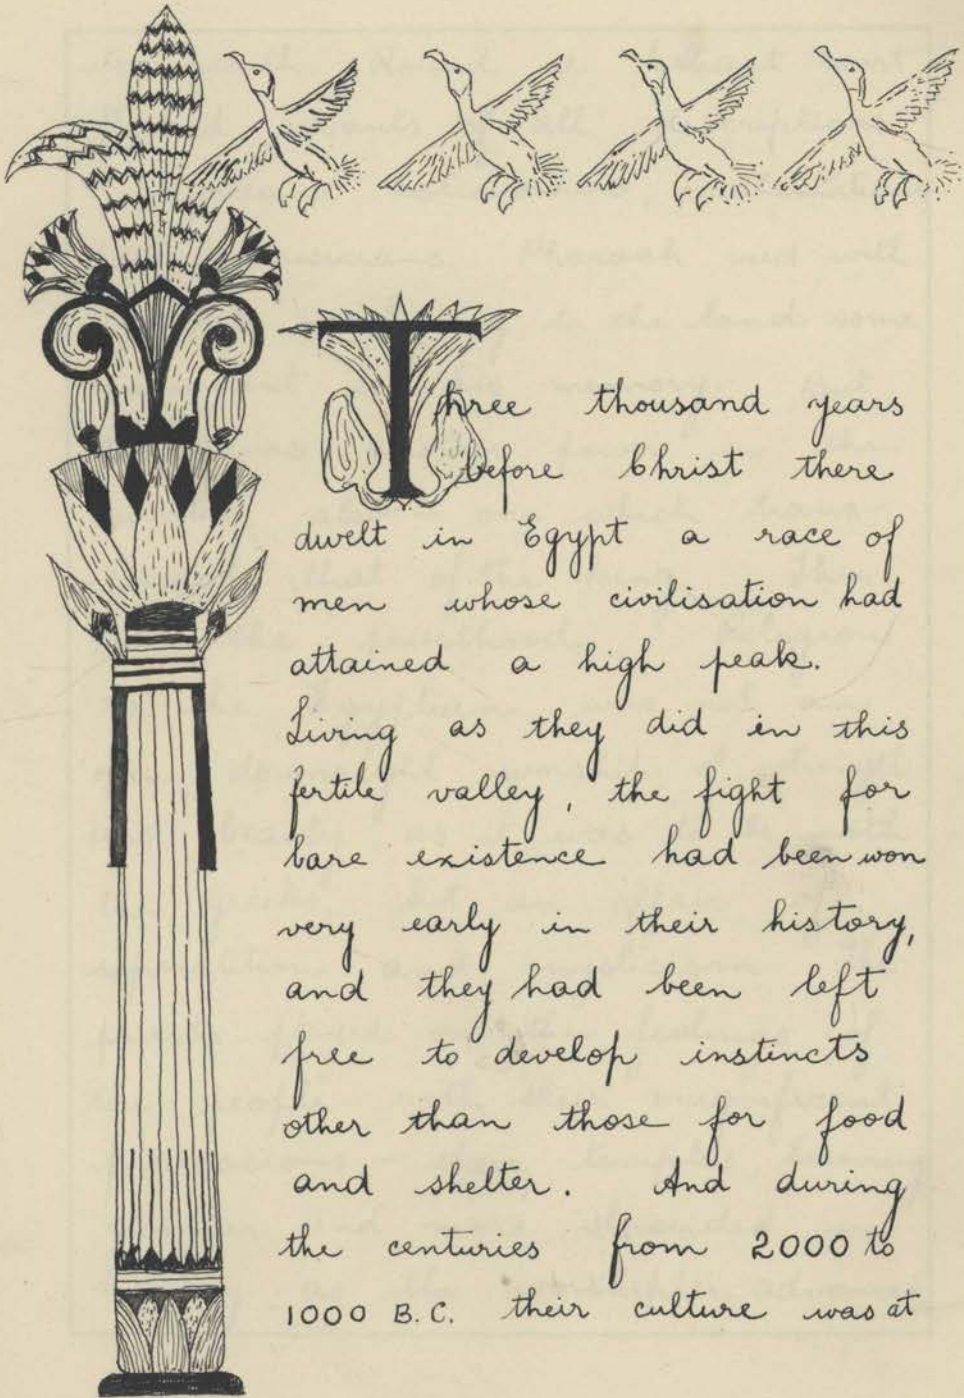 Three thousand years
before Christ there
dwelt in Egypt a race of
men whose civilisation had
attained a high peak.
Living as they did in this
fertile valley, the fight for
bare existence had been won
very early in their history,
and they had been left
free to develop instincts
other than those for food
and shelter. And during
the centuries from 2000 to
1000 B.C. their culture was at